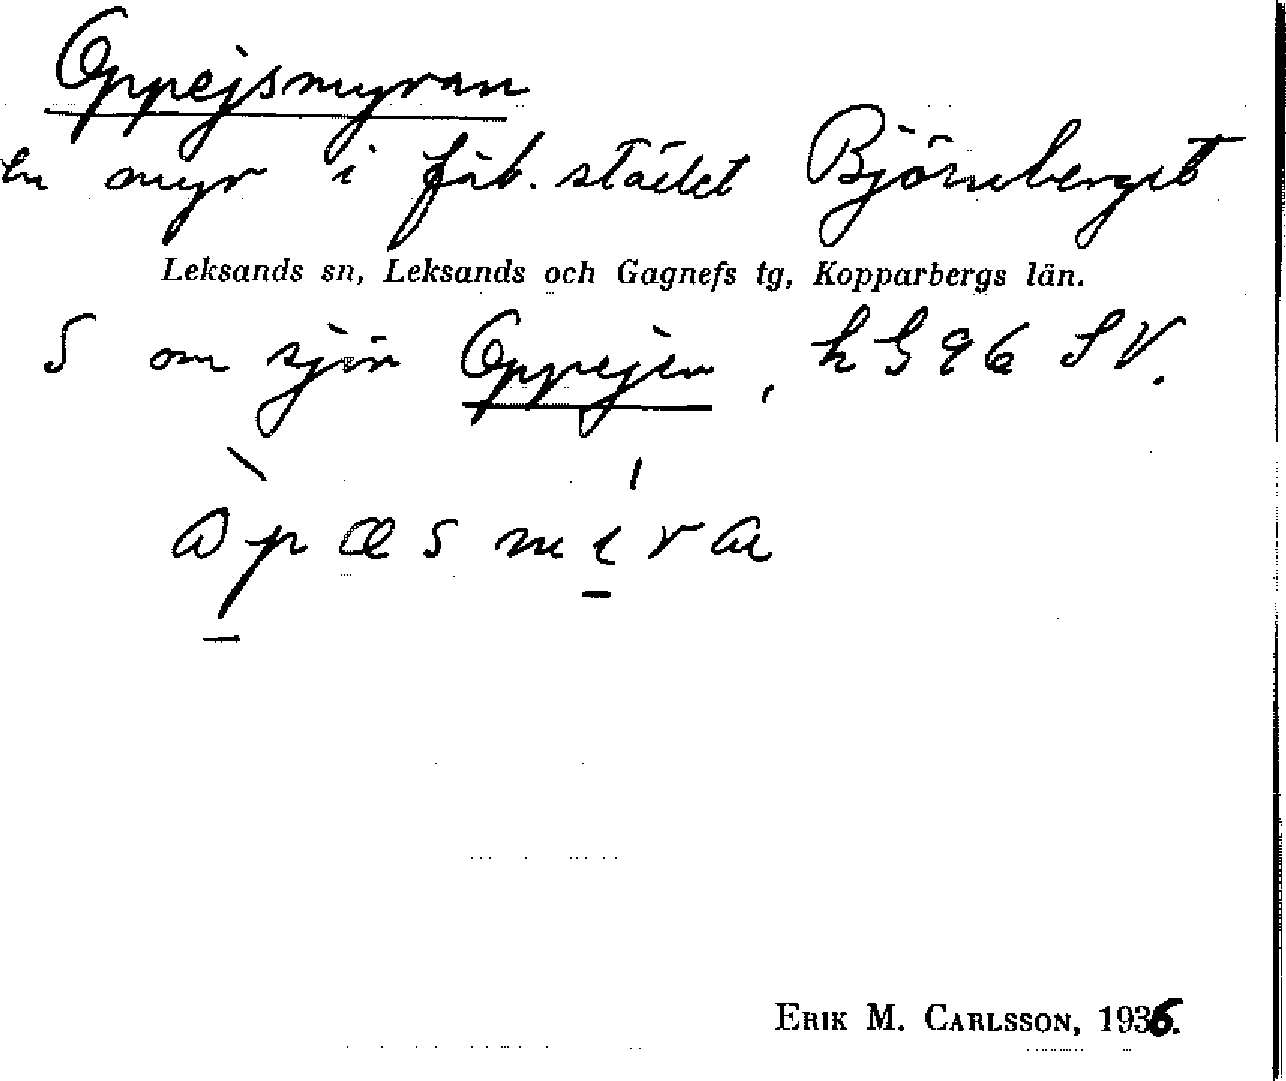 Oppejsmyran
En myr i fäb. stället Björnberget
Leksands sn, Leksands och Gagnefs tg, Kopparbergs län.
S om sjön Oppejen, h G 96 SV.
ERIK M. CARLSSON, 1936.